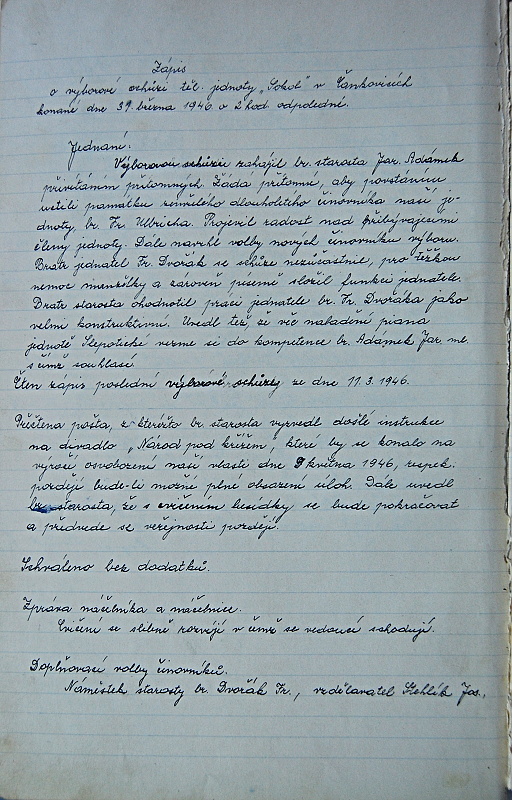 Zápis
o výborové schůzi těl. jednoty „Sokol" v Čankovicích
konané dne 31. března 1946 o 2 hod. odpolední.
Jednaní:
Výborovou schůzi zahájil br. starosta Jar. Adámek
přivítáním přítomných. Žádá přítomné, aby povstáním
uctili památku zemřelého dlouholetého činovníka naší je-
dnoty br. Fr. Ulbricha. Projevil radost nad přibývajícími
členy jednoty. Dále navrhl volby nových činovníků výboru.
Bratr jednatel Fr. Dvořák se schůze nezúčastnil, pro těžkou
nemoc manželky a zároveň písemě složil funkci jednatele.
Bratr starosta ohodnotil práci jednatele br. Fr. Dvořáka jako
velmi konstruktivní. Uvedl též, že věc naladění piana
jednotě Slepotické vezme si do kompetence br. Adámek Jar. ml.
s čímž souhlasí.
Čten zápis poslední výborové schůze ze dne 11.3.1946.
Přečtena pošta, z kteréžto br. starosta vyzvedl došlé instrukce
na divadlo „Národ pod křížem", které by se konalo na
výročí osvobození naší vlasti dne 9 května 1946, respek.
později bude-li možné plné obsazení úloh. Dále uvedl
br. starosta, že s cvičením besídky se bude pokračovat
a předvede se veřejnosti později.
Schváleno bez dodatků.
Zpráva náčelníka a náčelnice.
Cvičení se slibně rozvíjí v čemž se vedoucí shodují.
Doplňovací volby činovníků.
Náměstek starosty br. Dvořák Fr., vzdělavatel Stehlík Jos.,